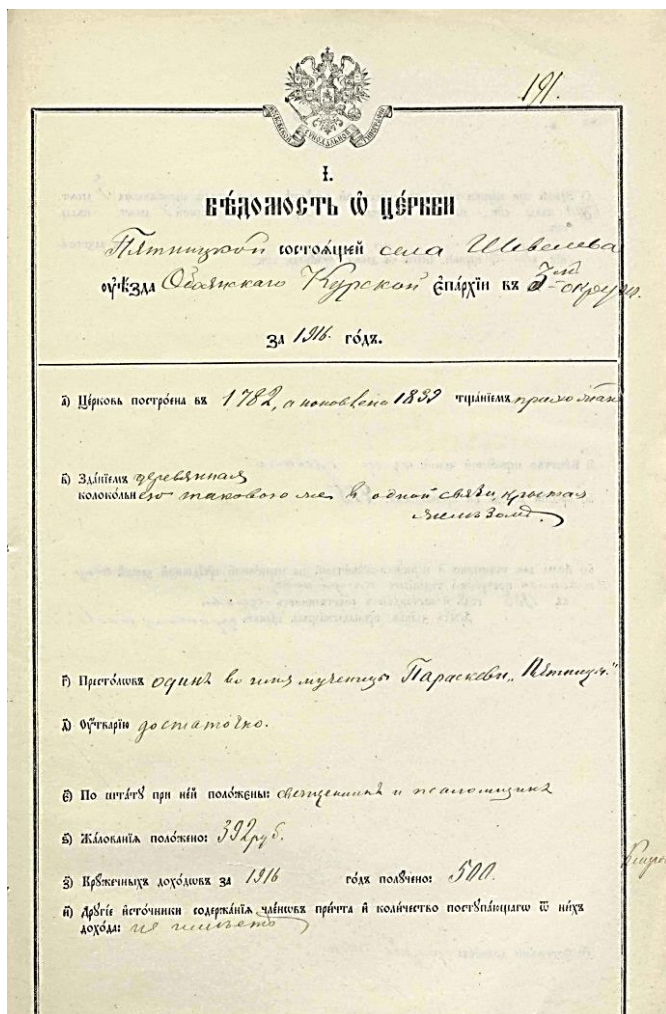 191.
МОСКОВСКОЙ СУНОДАЛЬНОЙ ТИПОГРАФІИ
I.
ВѢДОМОСТЬ Ѡ ЦЕ́РКВИ
Пятницкой состоѧ́щей села Шевелева
ᲂу҆ѣ́зда Обоянскаго Курской є҆па́рхїи въ 3-мъ округѣ.
за 1916. го́дъ.
а҃) Це́рковь постро́ена въ 1782, а поновлена 1839 тща́нїемъ прихожан
в҃) Зда́нїемъ деревянная
колоко́льнею таковою же в одной связи, крытая
желѣзомъ.
г҃) Престо́лѡвъ одинъ во имя мученицы Параскеви „Пятницы“
д҃) Оу҆́тварїю достаточно.
є҃) По шта́тꙋ при не́й поло́жены: священникъ и псаломщикъ
ѕ҃) Жа́лованїѧ поло́жено: 392 руб.
з҃) Крꙋ́жечныхъ дохо́дѡвъ за 1916 го́дъ полꙋ́чено: 500.
и҃) Дрꙋгі́е и҆сто́чники содержа́нїѧ чле́нѡвъ при́чта и҆ коли́чество постꙋпа́ющагѡ ѿ ни́хъ
дохо́да: не имѣетъ